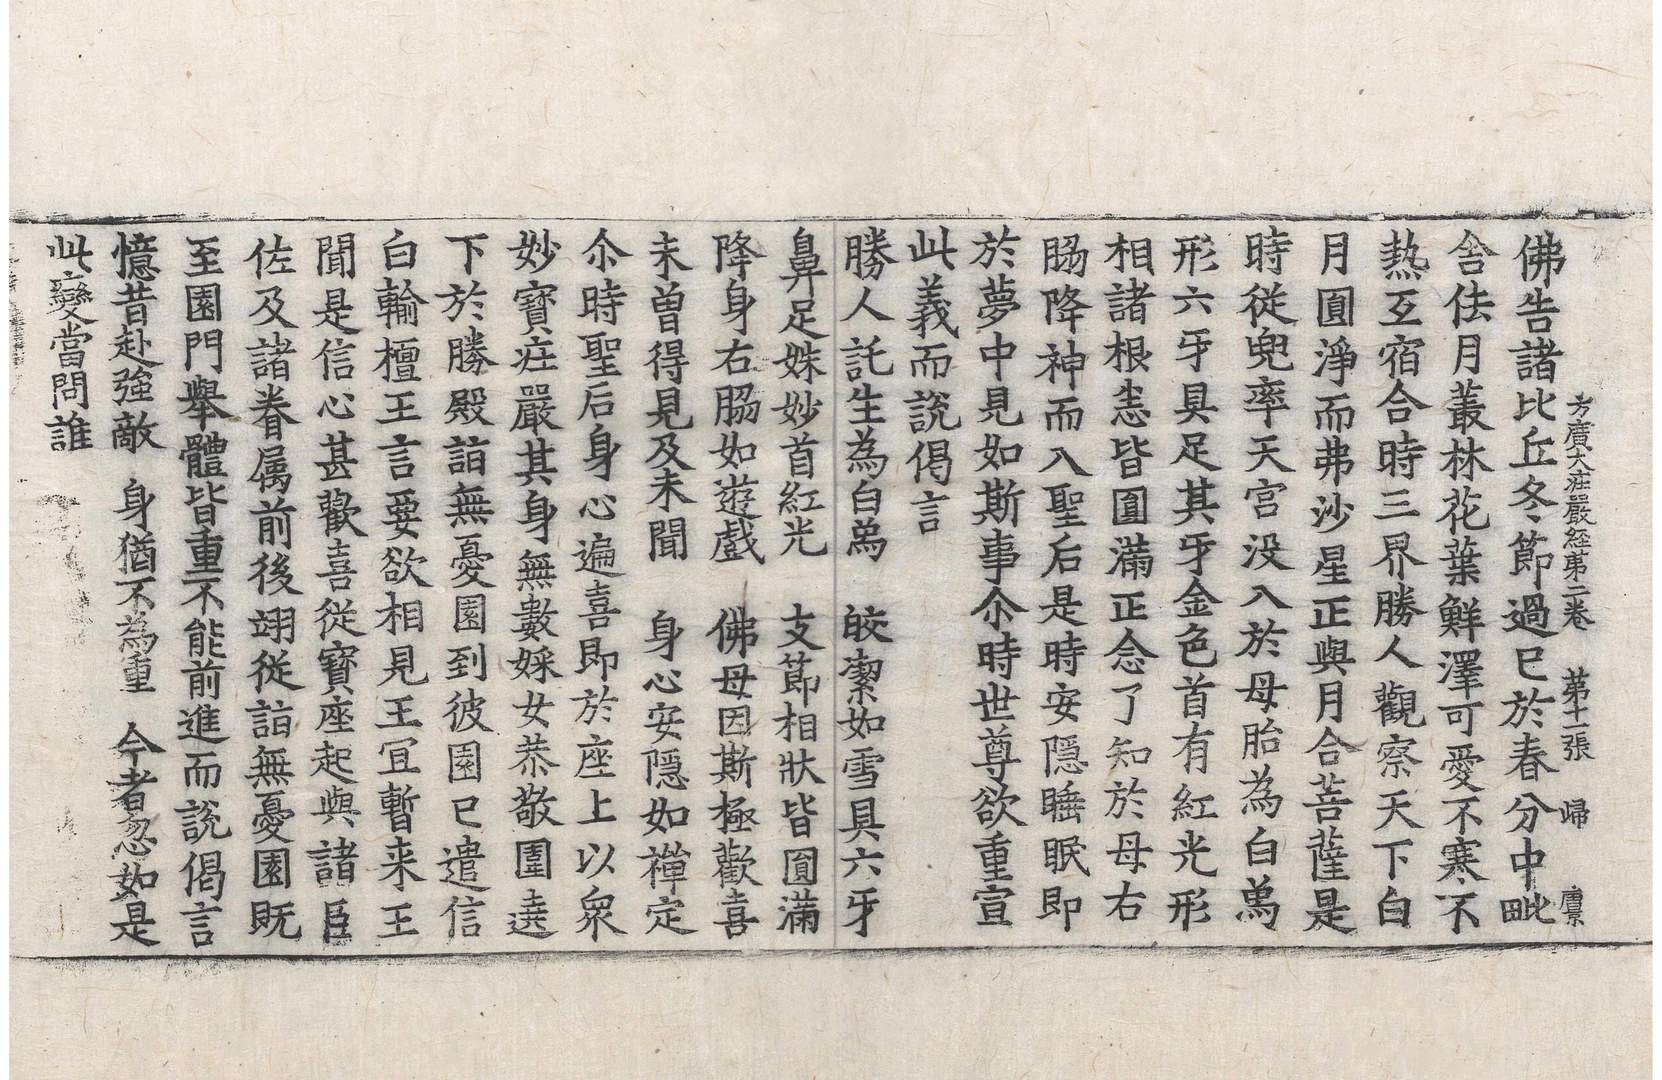 方廣大庄嚴経苐二卷 苐十一張 歸
佛告諸比丘冬節過已於春分中毗
舍佉月叢林花葉鮮澤可愛不寒不
熱互宿合時三界勝人觀察天下白
月圓淨而弗沙星正與月合菩薩是
時從兜率天宮没入於母胎為白𫝕
形六牙具足其牙金色首有紅光形
相諸根恚皆圓滿正念了知於母右
脇降神而入聖后是時安隱睡眠即
於夢中見如斯事尒時世尊欲重宣
此義而說偈言
勝人託生為白𫝕 皎潔如雪具六牙
鼻足姝妙首紅光 支節相狀皆圓滿
降身右脇如遊戲 佛母因斯極歡喜
未曽得見及未聞 身心安隱如禪定
尒時聖后身心遍喜即於座上以衆
妙寳庄嚴其身無數婇女恭敬圍遶
下於勝殿詣無憂園到彼園已遣信
白輸檀王言要欲相見王冝暫来王
聞是信心甚歡喜從寳座起與諸臣
佐及諸眷属前後翊從詣無憂園既
至園門舉體皆重不能前進而說偈言
憶昔赴強敵 身猶不為重 今者忽如是
此變當問誰